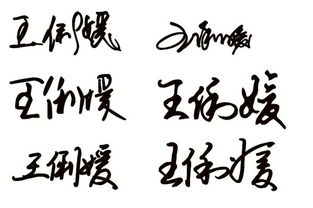 王俐媛 王俐媛
王俐媛 王俐媛
王俐媛 王俐媛